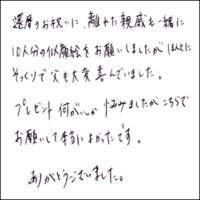 還暦のお祝いに、離れた親戚も一緒に
10人分の似顔絵をお願いしましたが ほんとに
そっくりで父も大変喜んでいました。
プレゼント何がいいか悩みましたがこちらで
お願いして本当によかったです。
ありがとうございました。